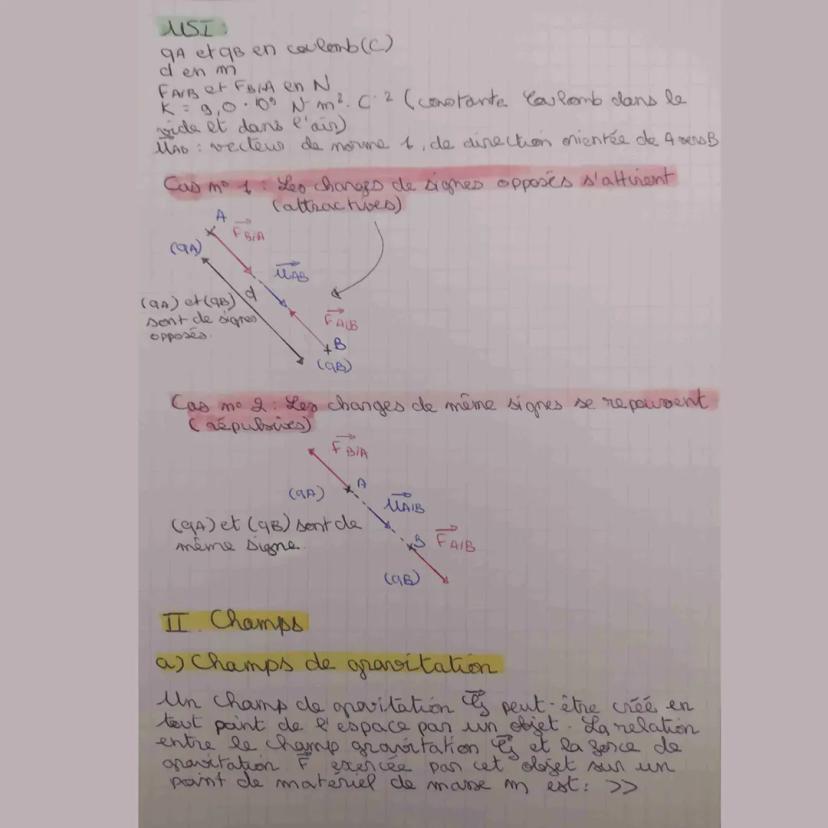 USI:
qA et qB en coulomb (C)
d en m
FA/B et FB/A en N
K = 9,0 · 10⁹ N·m²·C⁻² (constante Coulomb dans le
vide et dans l'air)
uAB : vecteur de norme 1, de direction orientée de A vers B
Cas n° 1 : Les charges de signes opposés s'attirent
(attractives)
A
FB/A
(qA)
uAB
d
(qA) et (qB)
sont de signes
opposés.
FA/B
B
(qB)
Cas n° 2 : Les charges de même signes se repoussent
(répulsives)
FB/A
A
(qA)
uA/B
(qA) et (qB) sont de
même signe.
B
FA/B
(qB)
II. Champs
a) Champs de gravitation
Un champ de gravitation G peut-être créé en
tout point de l'espace par un objet. La relation
entre le champ gravitation G et la force de
gravitation F exercée par cet objet sur un
point de matériel de masse m est : >>